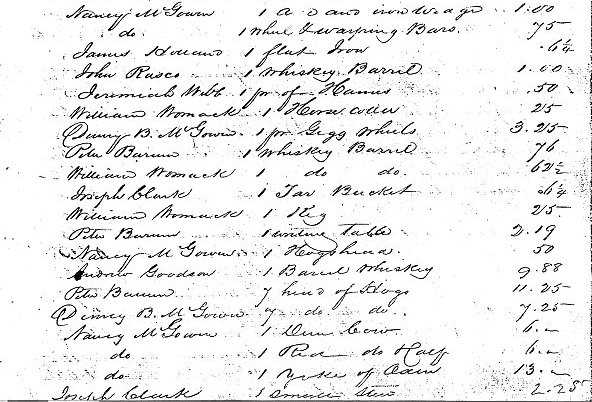 Nancy McGowen 1 a o and iron Wedge 1.00
do. 1 wheel & warping Bars. 75
James Holland 1 flat Iron .6¼
John Rasco 1 Whiskey Barrel 1.00
Jeremiah Webb 1 pr of Hames .50
William Womack 1 Horse coller 25
B. McGowen 1 pr Gegg wheels 3.25
Peter Barum 1 Whiskey Barrel 76
William Womack 1 do do. 62½
Joseph Clark 1 Tar Bucket .6¼
William Womack 1 Keg 25
Peter Barum 1 writing table 2.19
Nancy McGowen 1 Hogshead 50
Andrew Goodson 1 Barrel Whiskey 9.88
Peter Barum 7 head of Hogs 11.25
B. McGowen 7 do do.. 7.25
Nancy McGowen 1 Cow 6.
do 1 Red do Half 6.
do 1 Yoke of Oxen 13.
Joseph Clark 1 small 2.25